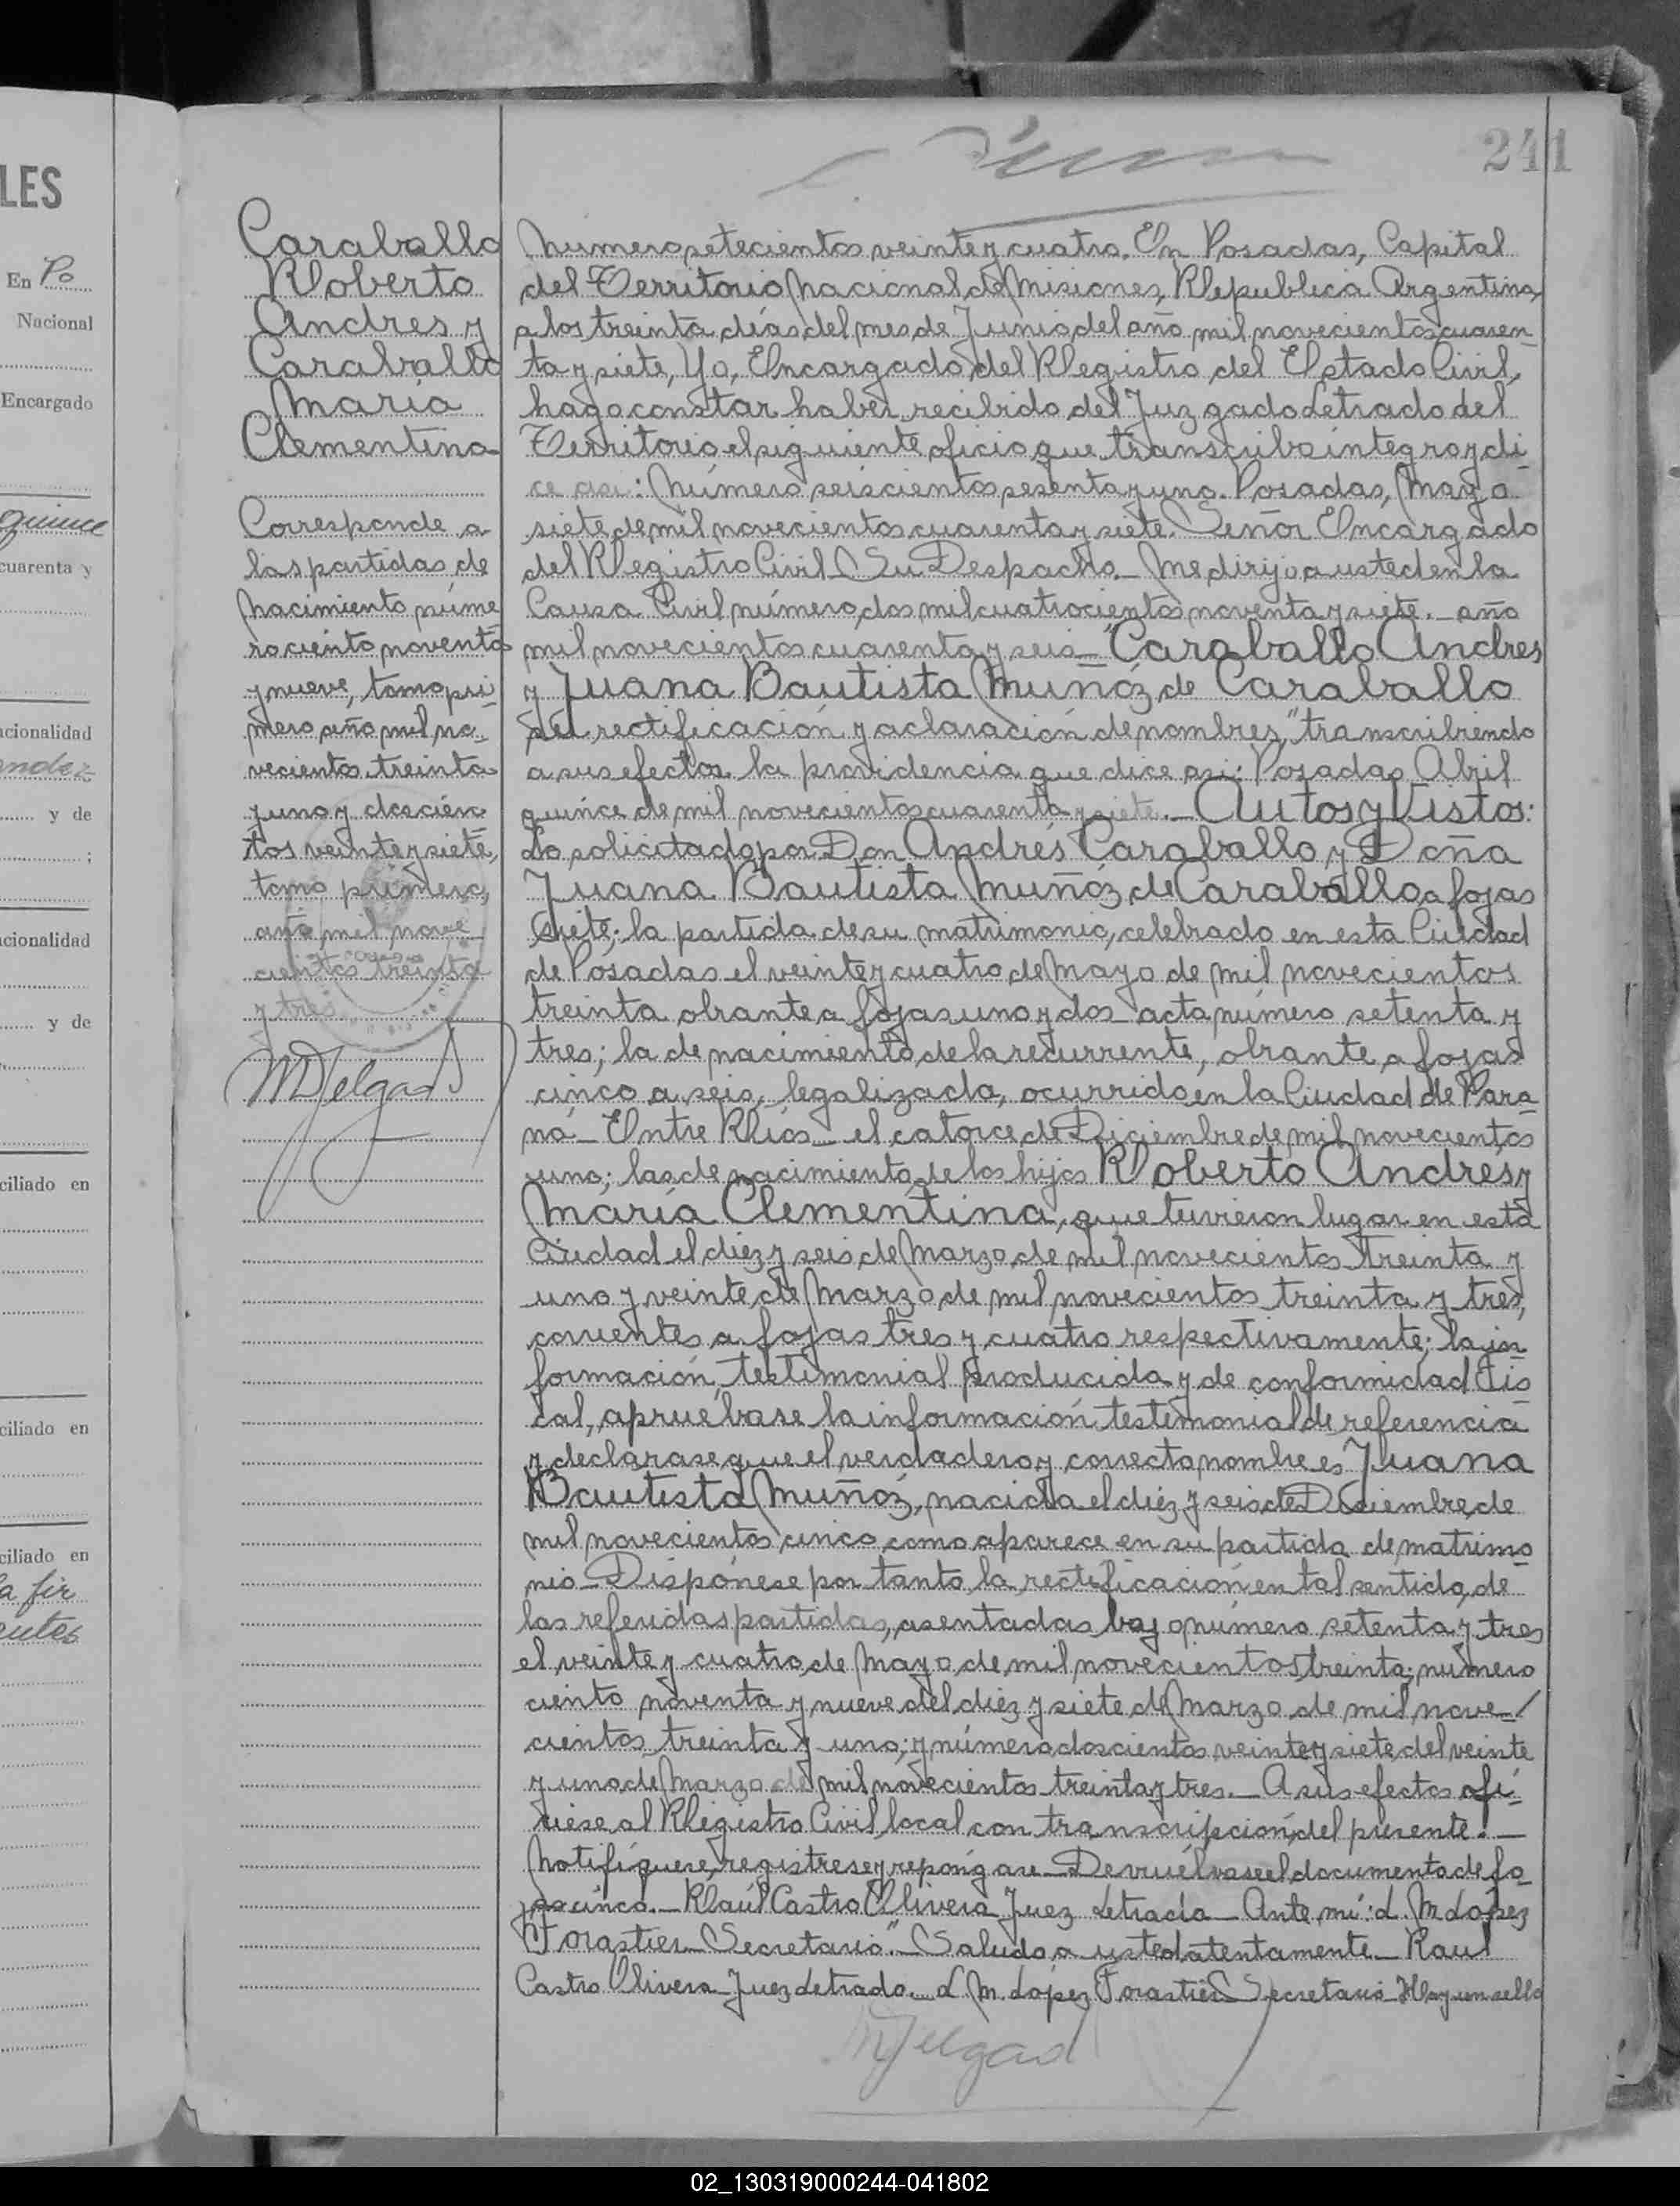 LES
En Po
Nacional
Encargado
quince
cuarenta y
acionalidad
andez
y de
;
acionalidad
y de
ciliado en
ciliado en
ciliado en
a fir
entes
241
Caraballo
Roberto
Andres y
Caraballo
Maria
Clementina
Corresponde a
las partidas de
nacimiento núme
ro ciento noventa
y nueve, tomo pri
mero año mil no-
vecientos treinta
y uno y doscien
tos veinte y siete,
tomo primero,
año mil nove
cientos treinta
y tres
MDelgado
Numero setecientos veinte y cuatro. En Posadas, Capital
del Territorio Nacional de Misiones, Republica Argentina,
a los treinta días del mes de Junio del año mil novecientos cuaren-
ta y siete, Yo, Encargado del Registro del Estado Civil,
hago constar haber recibido del Juzgado Letrado del
Territorio el siguiente oficio que transcribo íntegro y di
ce asi: Número seiscientos sesenta y uno. Posadas, Mayo
siete de mil novecientos cuarenta y siete. Señor Encargado
del Registro Civil Su Despacho.- Me dirijo a usted en la
Causa Civil número dos mil cuatrocientos noventa y siete.- año
mil novecientos cuarenta y seis- "Caraballo Andres
y Juana Bautista Muñóz de Caraballo
s/ rectificación y aclaración de nombres," transcribiendo
a sus efectos la providencia que dice asi: Posadas Abril
quince de mil novecientos cuarenta y siete.- Autos y Vistos:
Lo solicitado por Don Andrés Caraballo y Doña
Juana Bautista Muñóz de Caraballo a fojas
siete; la partida de su matrimonio, celebrado en esta Ciudad
de Posadas el veinte y cuatro de Mayo de mil novecientos
treinta obrante a fojas uno y dos acta número setenta y
tres; la de nacimiento de la recurrente, obrante a fojas
cinco a seis, legalizada, ocurrido en la Ciudad de Para-
ná- Entre Ríos- el catorce de Diciembre de mil novecientos
uno; las de nacimiento de los hijos Roberto Andrés y
María Clementina, que tuvieron lugar en esta
Ciudad el diez y seis de Marzo de mil novecientos treinta y
uno y veinte de Marzo de mil novecientos treinta y tres,
corrientes a fojas tres y cuatro respectivamente; la in
formación testimonial producida y de conformidad Fis
cal, apruebase la información testimonial de referencia
y declarase que el verdadero y correcto nombre es Juana
Bautista Muñóz, nacida el diez y seis de Diciembre de
mil novecientos cinco como aparece en su partida de matrimo
nio- Dispónese por tanto la rectificación en tal sentido, de
las referidas partidas, asentadas bajo número setenta y tres
el veinte y cuatro de Mayo de mil novecientos treinta; número
ciento noventa y nueve del diez y siete de Marzo de mil nove-/
cientos treinta y uno; y número doscientos veinte y siete del veinte
y uno de Marzo de mil novecientos treinta y tres.- A sus efectos ofí-
ciese al Registro Civil local con transcripción del presente.-
Notifíquese, regístrese y repóngase- Devuélvase el documento de fo-
jas cinco.- Raúl Castro Olivera Juez Letrado- Ante mí: L. M. López
Forastier Secretario".- Saludo a usted atentamente- Raul
Castro Olivera Juez Letrado.- L. M. López Forastier Secretario Hay un sello
MDelgado
02_130319000244-041802